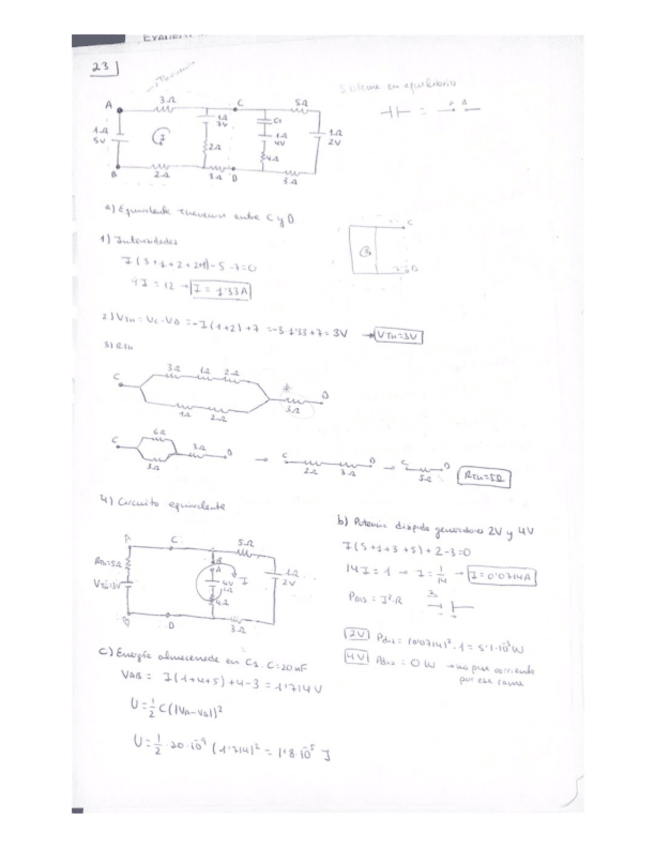 EXAMEN
23
→ Thevenin
Sistema en equilibrio
A
3Ω
C
5Ω
1Ω
5V
1Ω
7V
2Ω
C1
1Ω
4V
4Ω
1Ω
2V
B
2Ω
3Ω
D
3Ω
a) Equivalente Thevenin entre C y D
1) Intensidades
C
D
I (3+1+2+2+1) - 5 - 7 = 0
9I = 12 → I = 1'33A
2) VTH = VC - VD = -I(1+2) + 7 = -3·1'33 + 7 = 3V → VTH = 3V
3) RTH
C
3Ω 1Ω 2Ω
1Ω 2Ω
*
3Ω
D
C
6Ω
3Ω
3Ω
D
→
C
2Ω 3Ω
D
→
C
5Ω
D
RTH = 5Ω
4) Circuito equivalente
C
5Ω
RTH = 5Ω
VTH = 3V
B
A
4V
1Ω
4Ω
I
1Ω
2V
D
3Ω
b) Potencia disipada generadores 2V y 4V
I (5+1+3+5) + 2 - 3 = 0
14I = 1 → I = 1/14 → I = 0'0714A
PDIS = I²·R
2V Pdis = (0'0714)²·1 = 5'1·10⁻³ W
4V Pdis = 0 W → no pasa corriente
por esa rama
c) Energía almacenada en C1. C = 20 nF
VAB = I(1+4+5) + 4 - 3 = 1'714 V
U = 1/2 C (|VA - VB|)²
U = 1/2 · 20·10⁻⁹ (1'714)² = 1'8·10⁻⁵ J